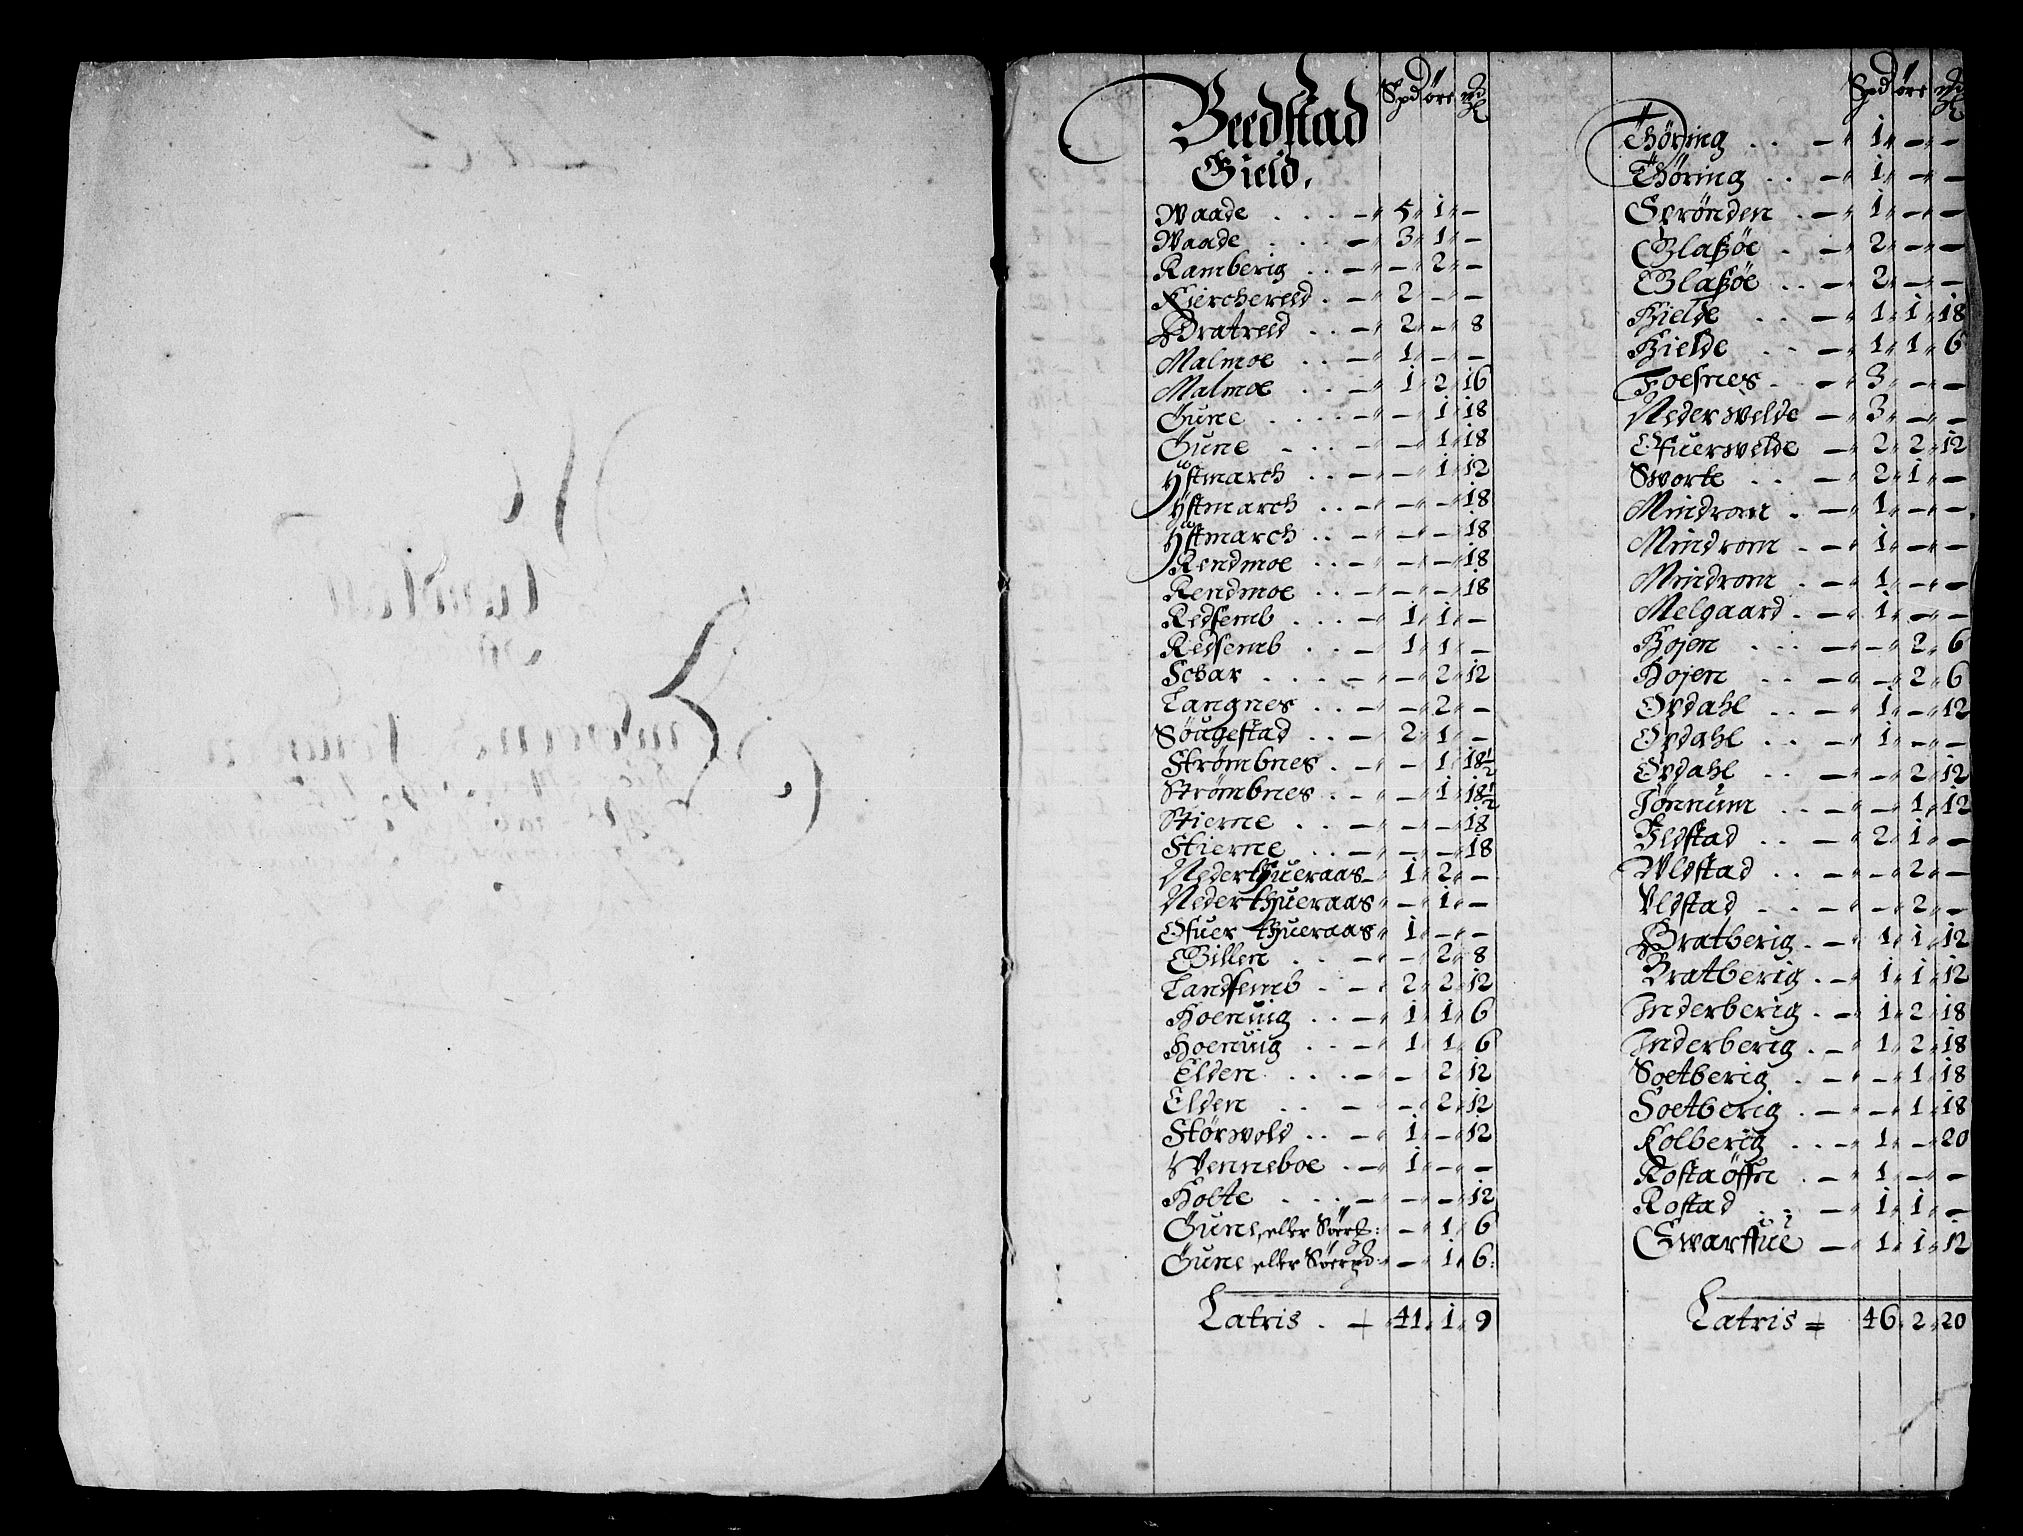 Beedstad Spd öre mkl
Gield,
Waade . . . - 5 " 1 " -
Waade . . . - 3 " 1 " -
Ramberig . . - " - " 2 " -
Kierchereid . - " 2 " - " -
Bratreid . . - " 2 " - " 8
Malmoe . . - " 1 " - " -
Malmoe . . - " 1 " 2 " 16
Gune . . . - " - " 1 " 18
Gune - . . - " - " 1 " 18
Hÿstmarch . . - " - " 1 " 12
Hÿstmarch . . - " - " - " 18
Hÿstmarch . . - " - " - " 18
Rendmoe . . - " - " - " 18
Rendmoe . . - " - " - " 18
Redsemb . . . - " 1 " 1 " -
Redsemb . . - " 1 " 1 " -
Schar . . . - " - " 2 " 12
Langnes . . - " - " 2 " -
Söugestad . . - " 2 " 1 " -
Strømbnes . - " - " 1 " 18½
Strømbnes . - " - " 1 " 18½
Stierne . . - " - " - " 18
Stierne . . - " - " - " 18
Nederthueraas - " 1 " 2 " -
Nederthueraas " - " 1 " -
Ofuer thueraas " 1 " - " -
Gillen . . - " - " 2 " 8
Landsemb . - " 2 " 2 " 12
Hoennig . . - " 1 " 1 " 6
Hoennig . . - " 1 " 1 " 6
Elden . . . - " - " 2 " 12
Elden . . - " - " 2 " 12
Störwold . . - " 1 " - " 12
Wenneboe . - " 1 " - " -
Holte . . . - " - " - " 12
Gune, eller : - " 1 " 6
Gune eller - " 1 " 6
Latris . - 41 " 1 " 9
Spd öre mkl
Thöring . . - " 1 " - " -
Thöring . . - " 1 " - " -
Sprönden . - " 1 " - " -
Glaßöe . . - " 2 " - " -
Glaßöe . . - " 2 " - " -
Hielde . . - " 1 " 1 " 18
Hielde . . - " 1 " 1 " 6
Foesnes . . - " 3 " - " -
Nederwelde - " 3 " - " -
Ofuerwelde - " 2 " 2 " 12
Sworte . . - " 2 " 1 " -
Mindrom . - " 1 " - " -
Mindrom . - " 1 " - " -
Mindrom . - " 1 " - " -
Melgaard . - " 1 " - " -
Hojen . . . - " - " 2 " 6
Hojen . . - " - " 2 " 6
Opdahl . . - " 1 " - " 12
Opdahl . . - " 1 " - " -
Opdahl . . - " - " 2 " 12
Jönnum . . - " - " 1 " 12
Ildstad . . - " 2 " 1 " -
Wldstad . . - " - " 2 " -
Vldstad . . - " - " 2 " -
Bratberig . - " 1 " 1 " 12
Bratberig . - " 1 " 1 " 12
Inderberig . - " 1 " 2 " 18
Inderberig . - " 1 " 2 " 18
Soetberig . - " - " 1 " 18
Soetberig . - " - " 1 " 18
Kolberig . . - " 1 " - " 20
Rostaöffn . - " 1 " - " -
Rostad . . - " 1 " 1 " -
Swarffue - " 1 " 1 " 12
Latris = 46 " 2 " 20